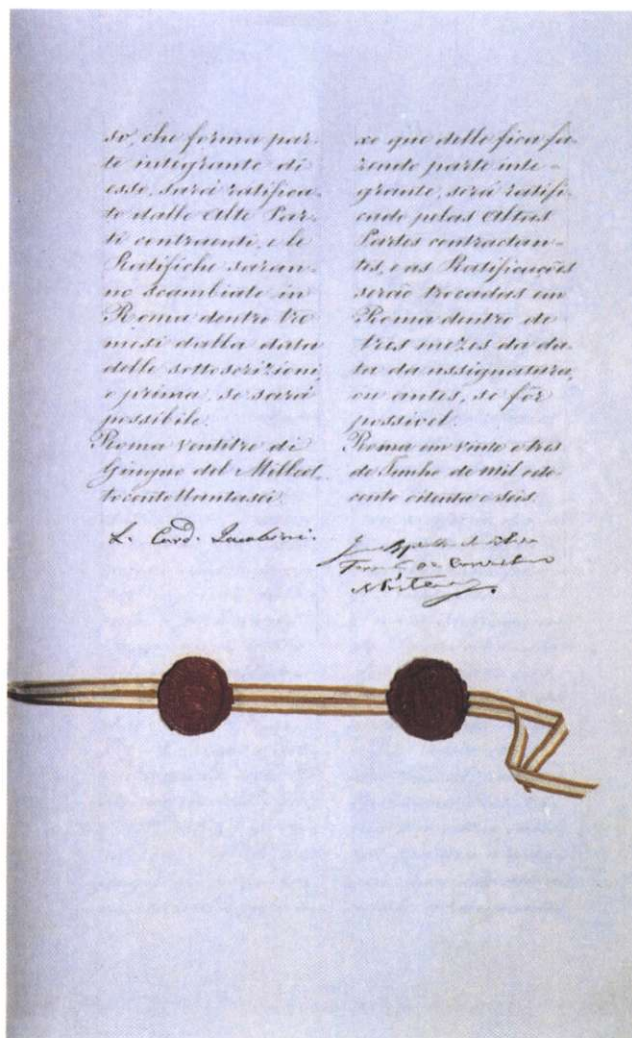 so, che forma par-
te integrante di
esso, sarà ratifica-
to dalle Alte Par-
ti contraenti, e le
Ratifiche saran-
no scambiate in
Roma dentro tre
mesi dalla data
delle sottoscrizioni
o prima, se sarà
possibile.
Roma ventitre di
Giugno del Milleot-
tocentottantasei.
L. Card. Jacobini.
xo que delle fica fa-
zendo parte inte-
grante, será ratifi-
cado pelas Altas
Partes contractan-
tes, e as Ratificações
serão trocadas em
Roma dentro de
tres mezes da da-
ta da assignatura,
ou antes, se fôr
possivel.
Roma em vinte e tres
de Junho de mil oito
cento oitenta e seis.
Martens